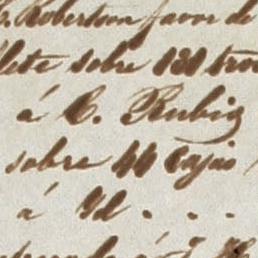 Robertson favor de
sobre 181
á C. Rubio
sobre 44 Cajas
á Id. . .
á